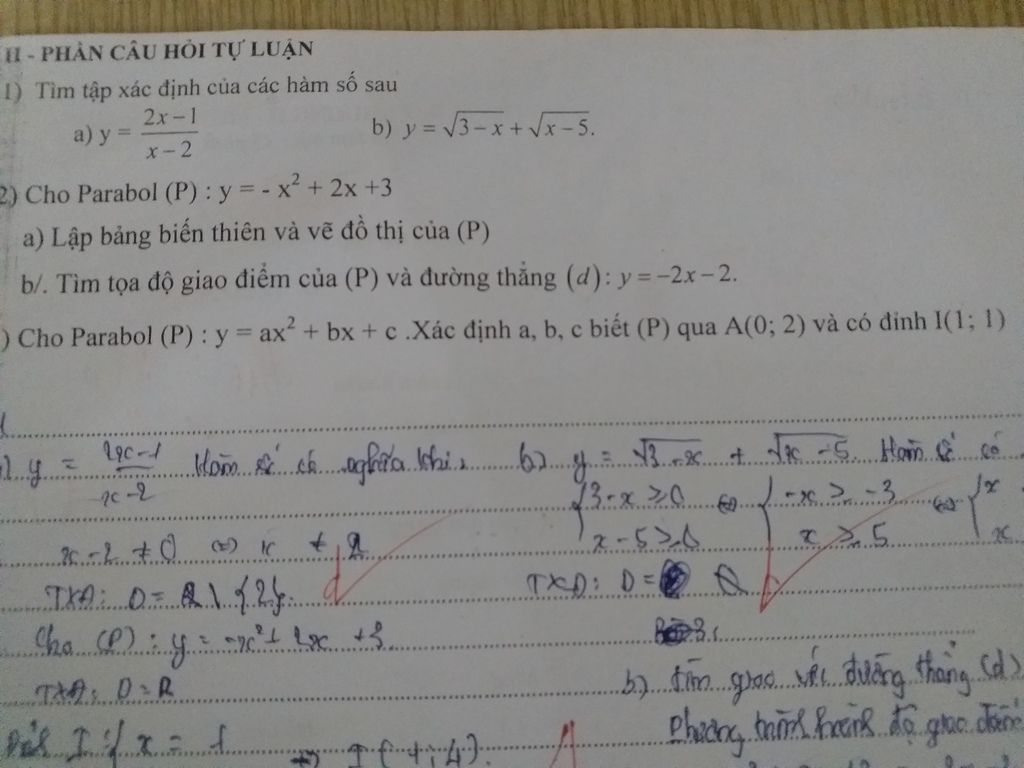 II - PHẦN CÂU HỎI TỰ LUẬN
1) Tìm tập xác định của các hàm số sau
a) y = \frac{2x-1}{x-2} b) y = √(3-x) + √(x-5).
2) Cho Parabol (P) : y = - x² + 2x +3
a) Lập bảng biến thiên và vẽ đồ thị của (P)
b/. Tìm tọa độ giao điểm của (P) và đường thẳng (d): y = -2x - 2.
) Cho Parabol (P) : y = ax² + bx + c .Xác định a, b, c biết (P) qua A(0; 2) và có đỉnh I(1; 1)
y = \frac{2x-1}{x-2} Hàm số có nghĩa khi: b) y = √(3-x) + √(x-5). Hàm số có
{3-x ≥ 0 ⇔ {-x ≥ -3 ⇔ {x
x-2 ≠ 0 ⇔ x ≠ 2 x-5 ≥ 0 x ≥ 5 x
TXĐ: D = R \ {2}. TXĐ: D =
Cho (P) : y = -x² + 2x + 3
TXĐ: D = R b) tìm giao với đường thẳng (d)
I x = 1 ⇒ I(1; 4). Phương trình hoành độ giao điểm